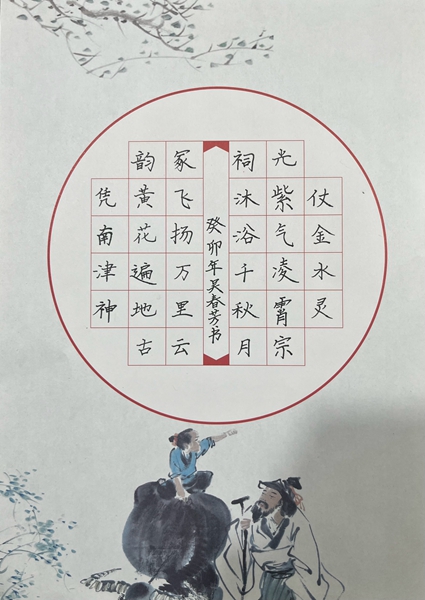 仗金水灵
光紫气凌霄宗
祠沐浴千秋月
凭南津神
韵黄花遍地古
冢飞扬万里云
癸卯年吴春芳书